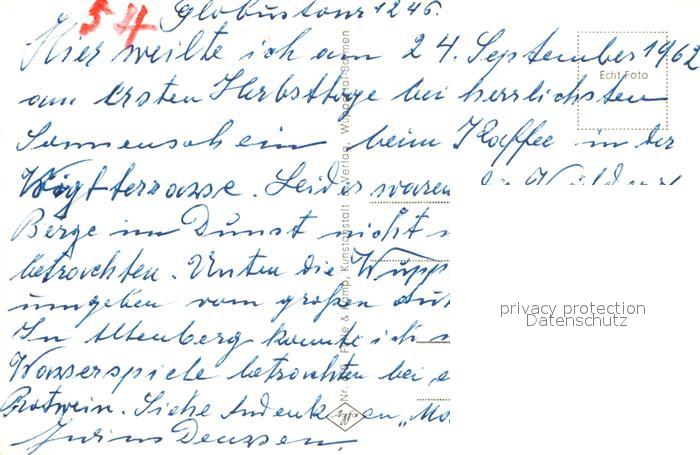 54
Globustour 1246.
Hier weilte ich am 24. September 1962
am ersten Herbsttage bei herrlichsten
Sonnenschein beim Kaffee in der
Vogtterrasse. Leider waren die Wälder
Berge im Dunst nicht
betrachten. Unten die Wupp
umgeben vom großen
In Altenberg konnte ich
Wasserspiele betrachten bei
Rotwein. Siehe Andenken „Mo
Deussen.
Echt Foto
Kunstanstalt Verlag, Wuppertal-Barmen
Agfa
privacy protection
Datenschutz